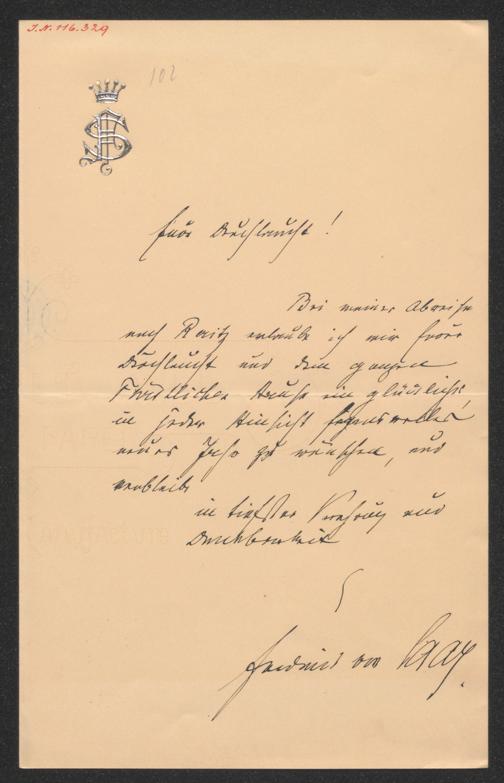 J.N. 116.329
102
FS
Euer Durchlaucht!
Bei meiner Abreise
nach Raitz erlaube ich mir Euer
Durchlaucht und dem ganzen
Fürstlichen Hause ein glückliches,
in jeder Hinsicht segensvolles
neues Jahr zu wünschen, und
verbleibe
in tiefster Verehrung und
Dankbarkeit
von